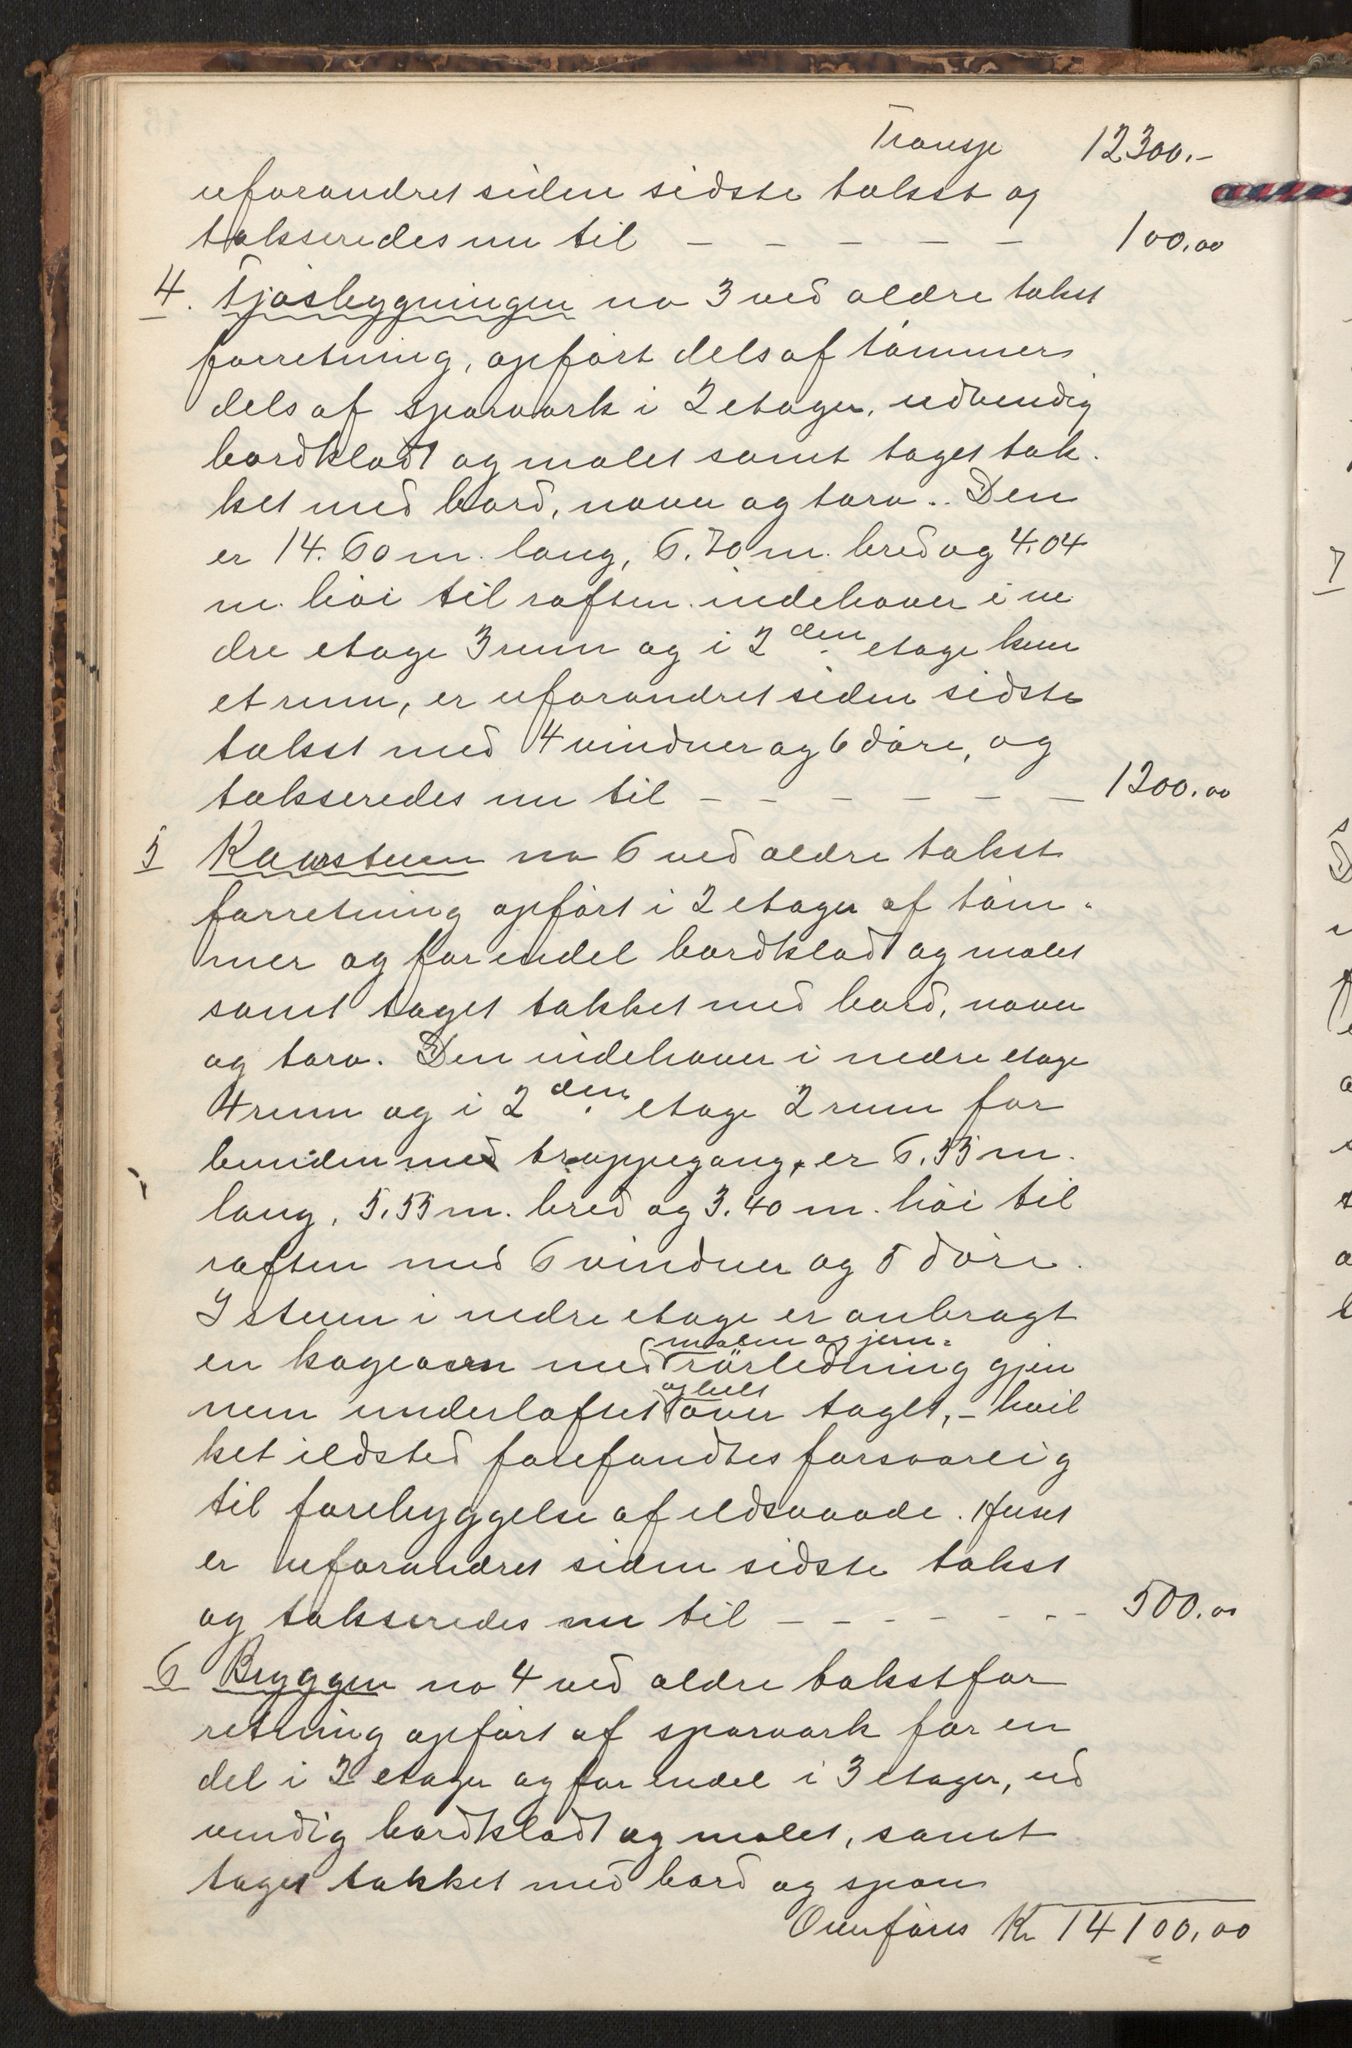 Transp 12300.-
uforandret siden sidste takst og
takseredes nu til - - - - - 100.00
4. Fjøsbygningen no 3 ved ældre takst
forretning, opført dels af tømmer
dels af sparværk i 2 etager, udvendig
bordklædt og malet samt taget tæk.
ket med bord, næver og torv. Den
er 14.60 m. lang, 6.70 m. bred og 4.04
m. høi til raften. indehaver i ne
dre etage 3 rum og i 2den etage kun
et rum, er uforandret siden sidste
takst med 4 vinduer og 6 døre, og
takseredes nu til - - - - - - 1200.00
5 Kaarstuen no 6 ved ældre takst
forretning opført i 2 etager af tøm-
mer og for endel bordklædt og malet
samt taget tækket med bord, næver
og torv. Den indehaver i nedre etage
4 rum og i 2den etage 2 rum for
bunden med trappegang, er 6.55 m.
lang, 5.55 m. bred og 3.40 m. høi til
raften med 6 vinduer og 5 døre.
I stuen i nedre etage er anbragt
en kogeovn med rørledning gjen
nem underloftet og helt over taget, - hvil
ket ildsted forefandtes forsvarlig
til forebyggelse af ildsvaade. Huset
er uforandret siden sidste takst
og takseredes nu til - - - - - - - 500.00
6 Bryggen no 4 ved ældre takstfor
retning opført af sparværk for en
del i 2 etager og for endel i 3 etager, ud
vendig bordklædt og malet, samt
taget tækket med bord og spon
Overføres Kr 14100.00